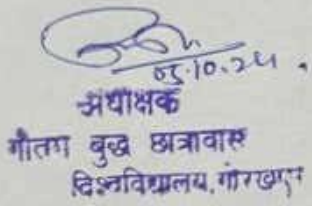 05.10.24.
अधीक्षक
गौतम बुद्ध छात्रावास
विश्वविद्यालय, गोरखपुर